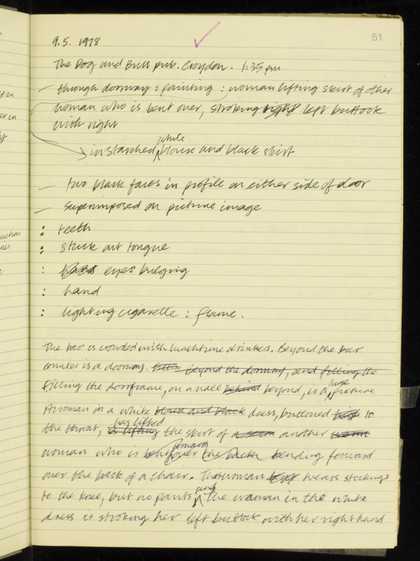 51
9.5.1978
The Dog and Bull pub. Croydon. 1.35 pm
— through doorway : painting : woman lifting skirt of other
woman who is bent over, stroking right left buttock
with right
→ in starched white blouse and black skirt
— two black faces in profile on either side of door
— superimposed on picture image
: teeth
: stuck out tongue
: eyes bulging
: hand
: lighting cigarette : flame.
The bar is crowded with lunchtime drinkers. Beyond the bar
counter is a doorway. beyond the doorway, and filling the
filling the doorframe, on a wall behind beyond, is a huge picture
A woman in a white blouse and black dress, buttoned to
the throat, has lifted is lifting the skirt of a seem another
woman who is woman bending forward
over the back of a chair. That woman wears stockings
to the knee, but no pants, and the woman in the white
dress is stroking her left buttock with her right hand